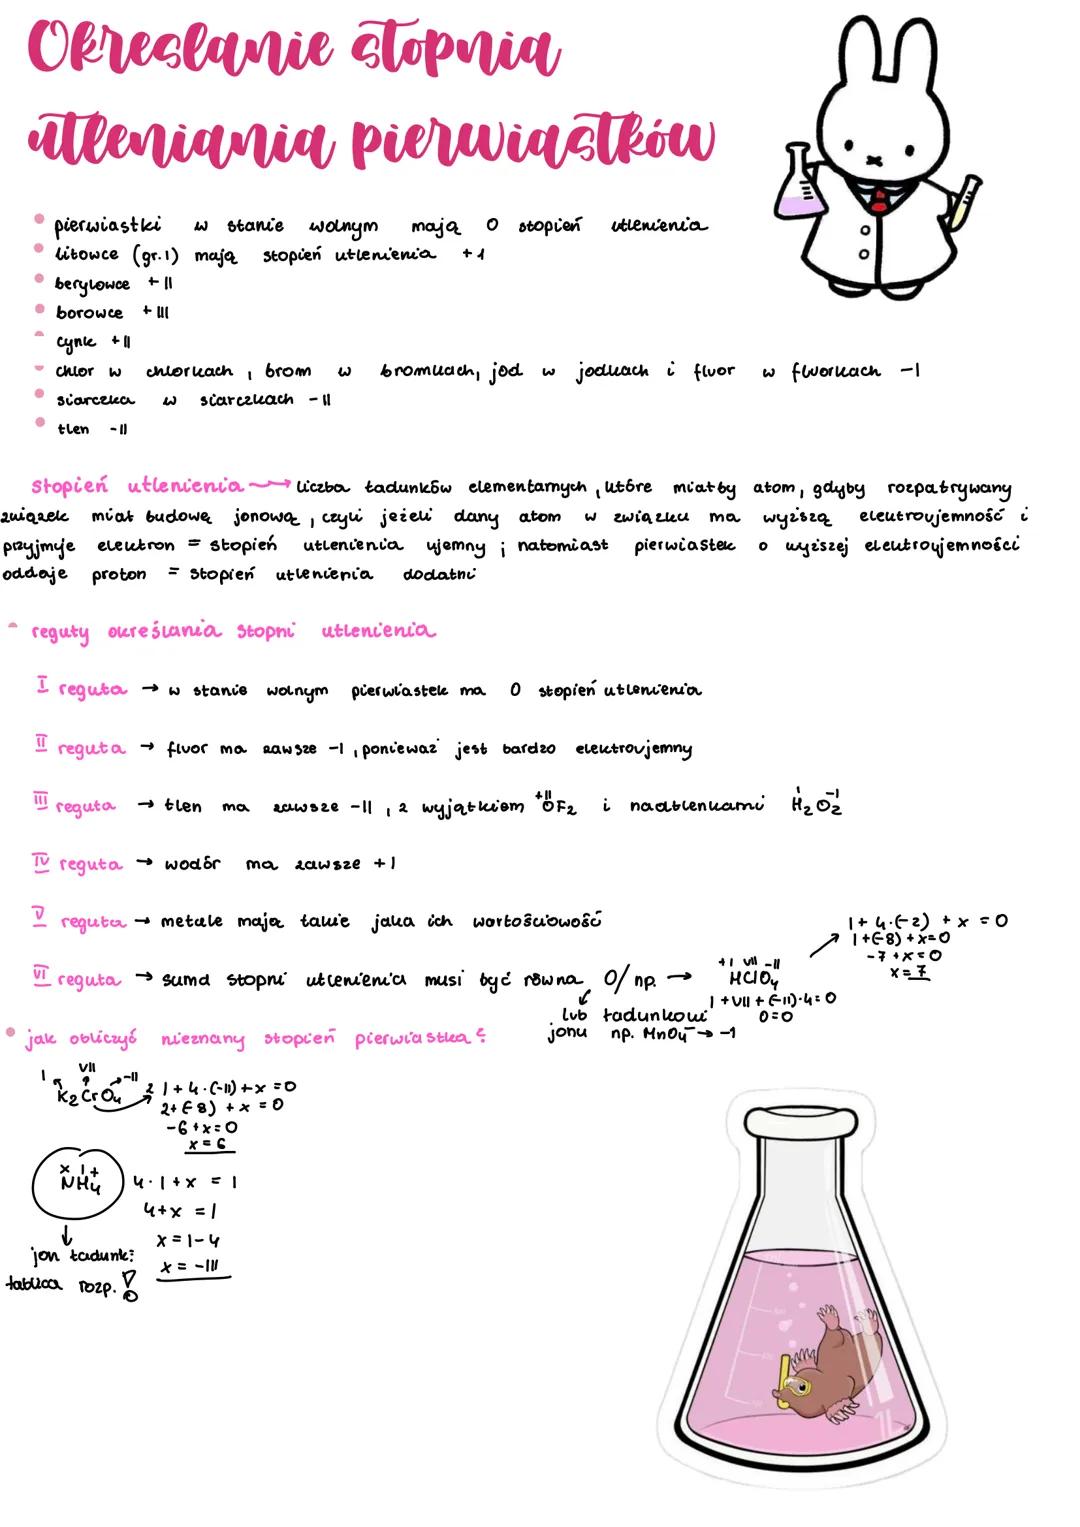 Określanie stopnia
utleniania pierwiastków
• pierwiastki w stanie wolnym mają 0 stopień utlenienia
• litowce (gr.1) mają stopień utlenienia +1
• berylowce +II
• borowce +III
• cynk +II
• chlor w chlorkach, brom w bromkach, jod w jodkach i fluor w fluorkach -1
• siarczka w siarczkach -II
• tlen -II
stopień utlenienia → liczba ładunków elementarnych, które miałby atom, gdyby rozpatrywany
związek miał budowę jonową, czyli jeżeli dany atom w związku ma wyższą elektroujemność i
przyjmuje elektron = stopień utlenienia ujemny; natomiast pierwiastek o wyższej elektroujemności
oddaje proton = stopień utlenienia dodatni
• reguły określania stopni utlenienia
I reguła → w stanie wolnym pierwiastek ma 0 stopień utlenienia
II reguła → fluor ma zawsze -1, ponieważ jest bardzo elektroujemny
III reguła → tlen ma zawsze -II, z wyjątkiem +II OF2 i nadtlenkami I H2 -1 O2
IV reguła → wodór ma zawsze +1
V reguła → metale mają takie jaka ich wartościowość
1+4·(-2)+x=0
1+(-8)+x=0
-7+x=0
x=7
VI reguła → suma stopni utlenienia musi być równa 0/np. → +I VII -II HClO4
1+VII+(-II)·4=0
0=0
lub ładunkowi
jonu np. MnO4⁻ → -1
• jak obliczyć nieznany stopień pierwiastka?
I VII -II
K2CrO4
2·1+4·(-II)+x=0
2+(-8)+x=0
-6+x=0
x=6
x I +
NH4
4·1+x=1
4+x=1
x=1-4
x=-III
jon ładunk:
tablica rozp.!